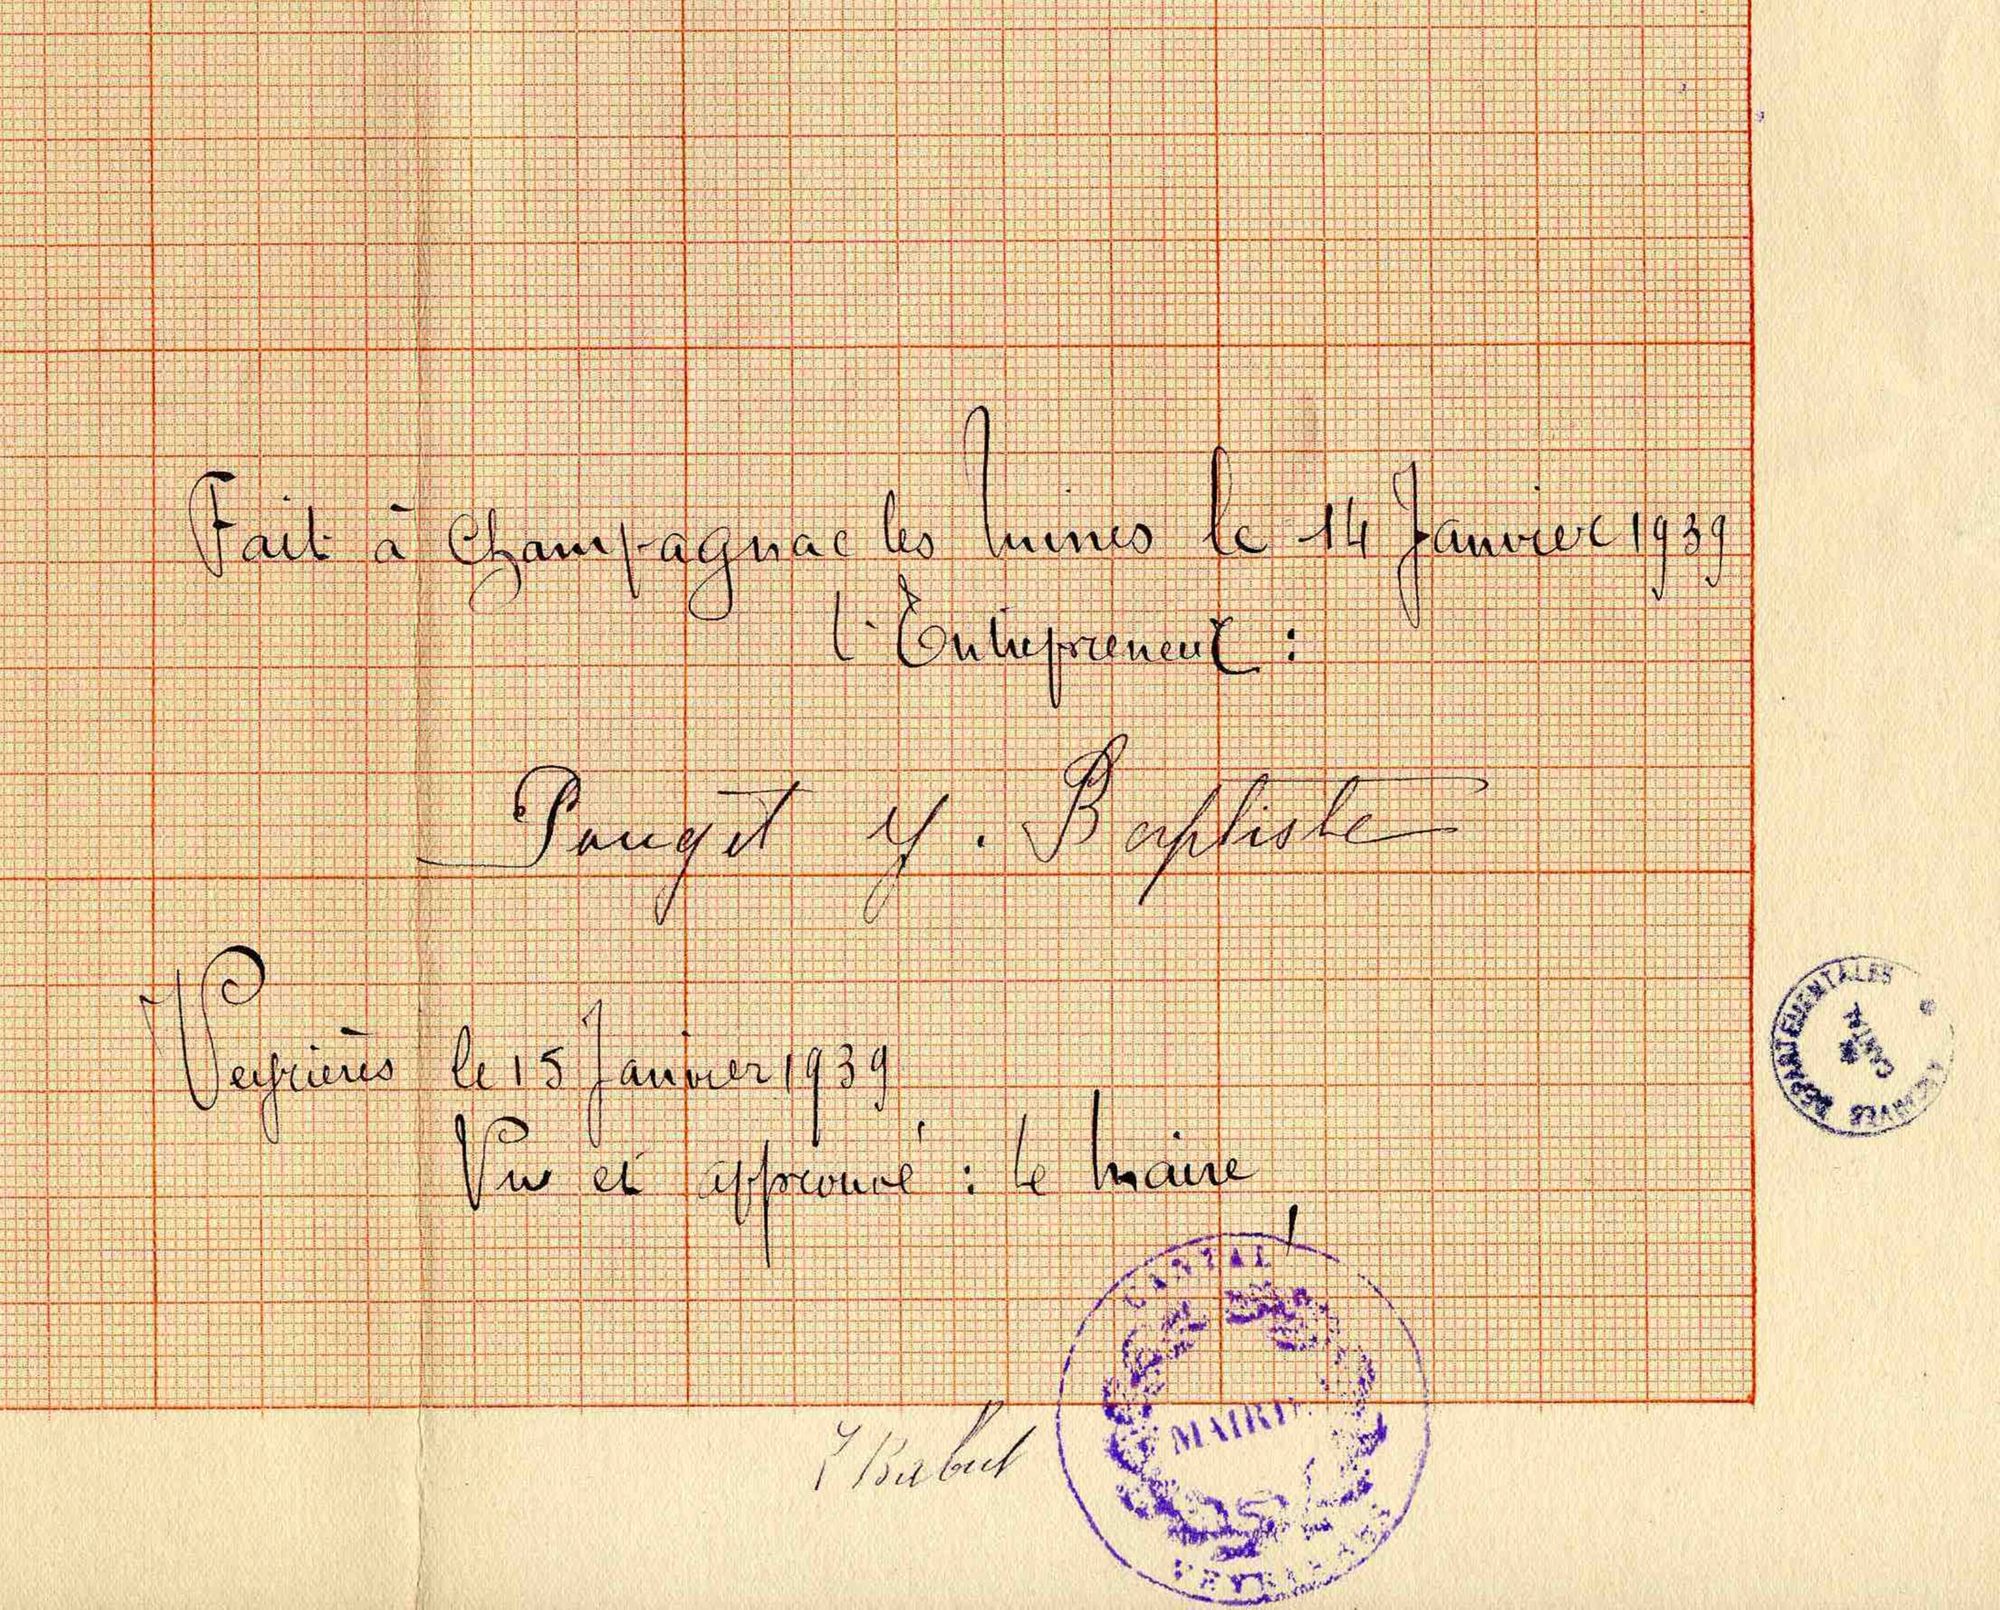 Fait à Champagnac les Mines le 14 Janvier 1939
l'Entrepreneur :
Pouget J. Baptiste
Veyrières le 15 Janvier 1939
Vu et approuvé : le Maire
CANTAL
MAIRIE
VEYRIÈRES
ARCHIVES DÉPARTEMENTALES
CANTAL